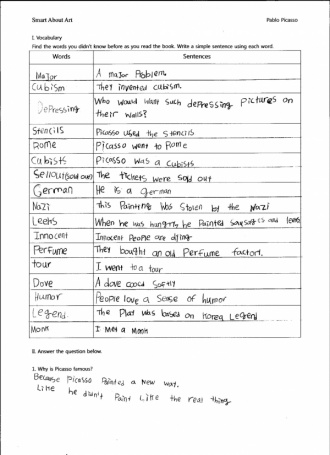 Smart About Art Pablo Picasso
I. Vocabulary
Find the words you didn't know before as you read the book. Write a simple sentence using each word.
Words Sentences
Major A major Problem.
Cubism They invented cubism.
Depressing Who would want such depressing pictures on
their walls?
Stencils Picasso used the stencils
Rome Picasso went to Rome
Cubists Picasso was a cubists
The tickets were sold out
German He is a german
Nazi this Painting was stolen by the Nazi
Leeks When he was hungry, he Painted sausages and leeks
Innocent Innocent People are dying
Perfume They bought an old Perfume factory.
tour I went to a tour
Dove A dove cooed softly
Humor People love a sense of humor
Legend The Play was based on Korea Legend
Monk I met a Monk
II. Answer the question below.
1. Why is Picasso famous?
Because Picasso Painted a new way.
Like he didn't Paint Like the real thing